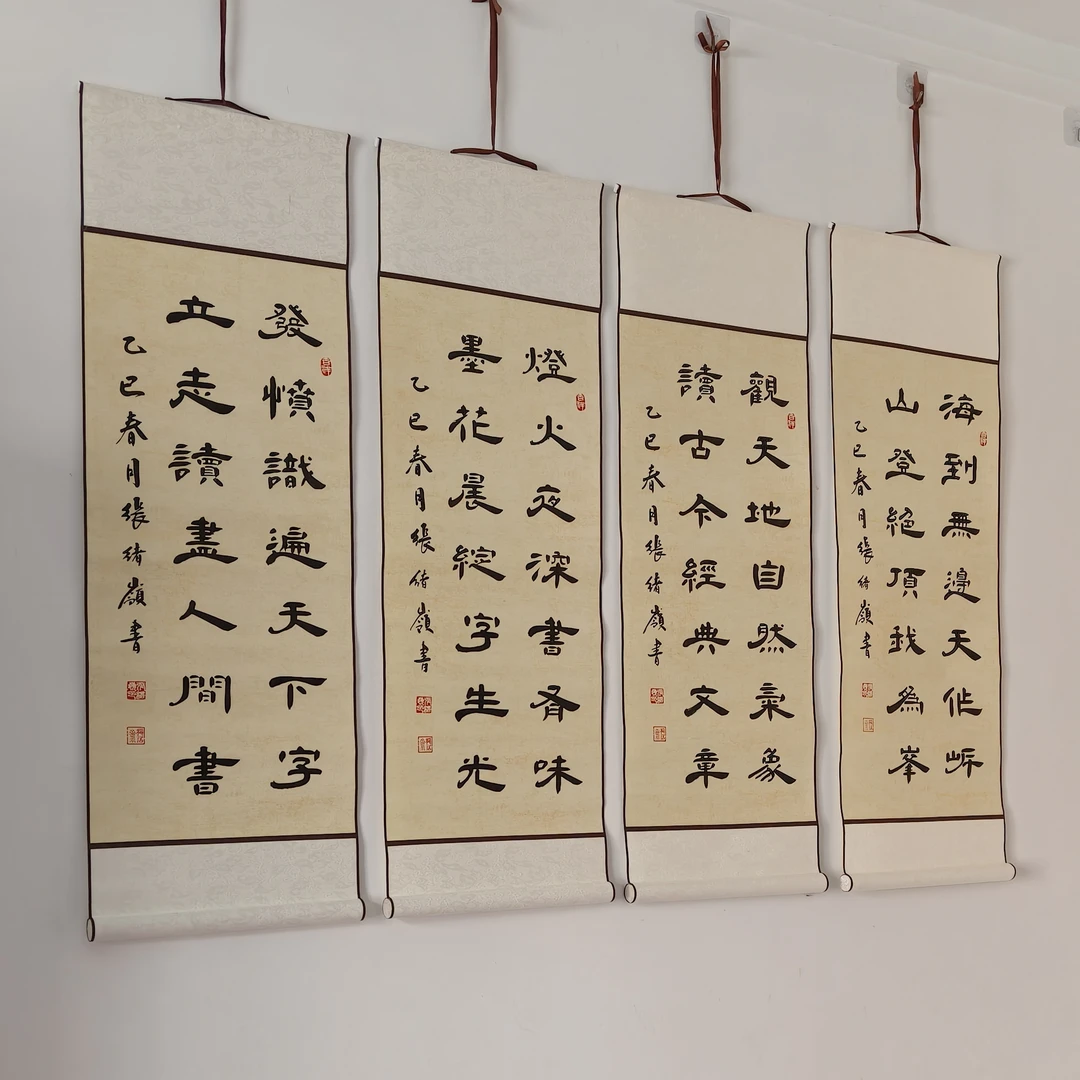 海到無邊天作岸
山登絕頂我為峯
乙巳春月張緒嶺書
觀天地自然氣象
讀古今經典文章
乙巳春月張緒嶺書
燈火夜深書有味
墨花晨綻字生光
乙巳春月張緒嶺書
發憤識遍天下字
立志讀盡人間書
乙巳春月張緒嶺書